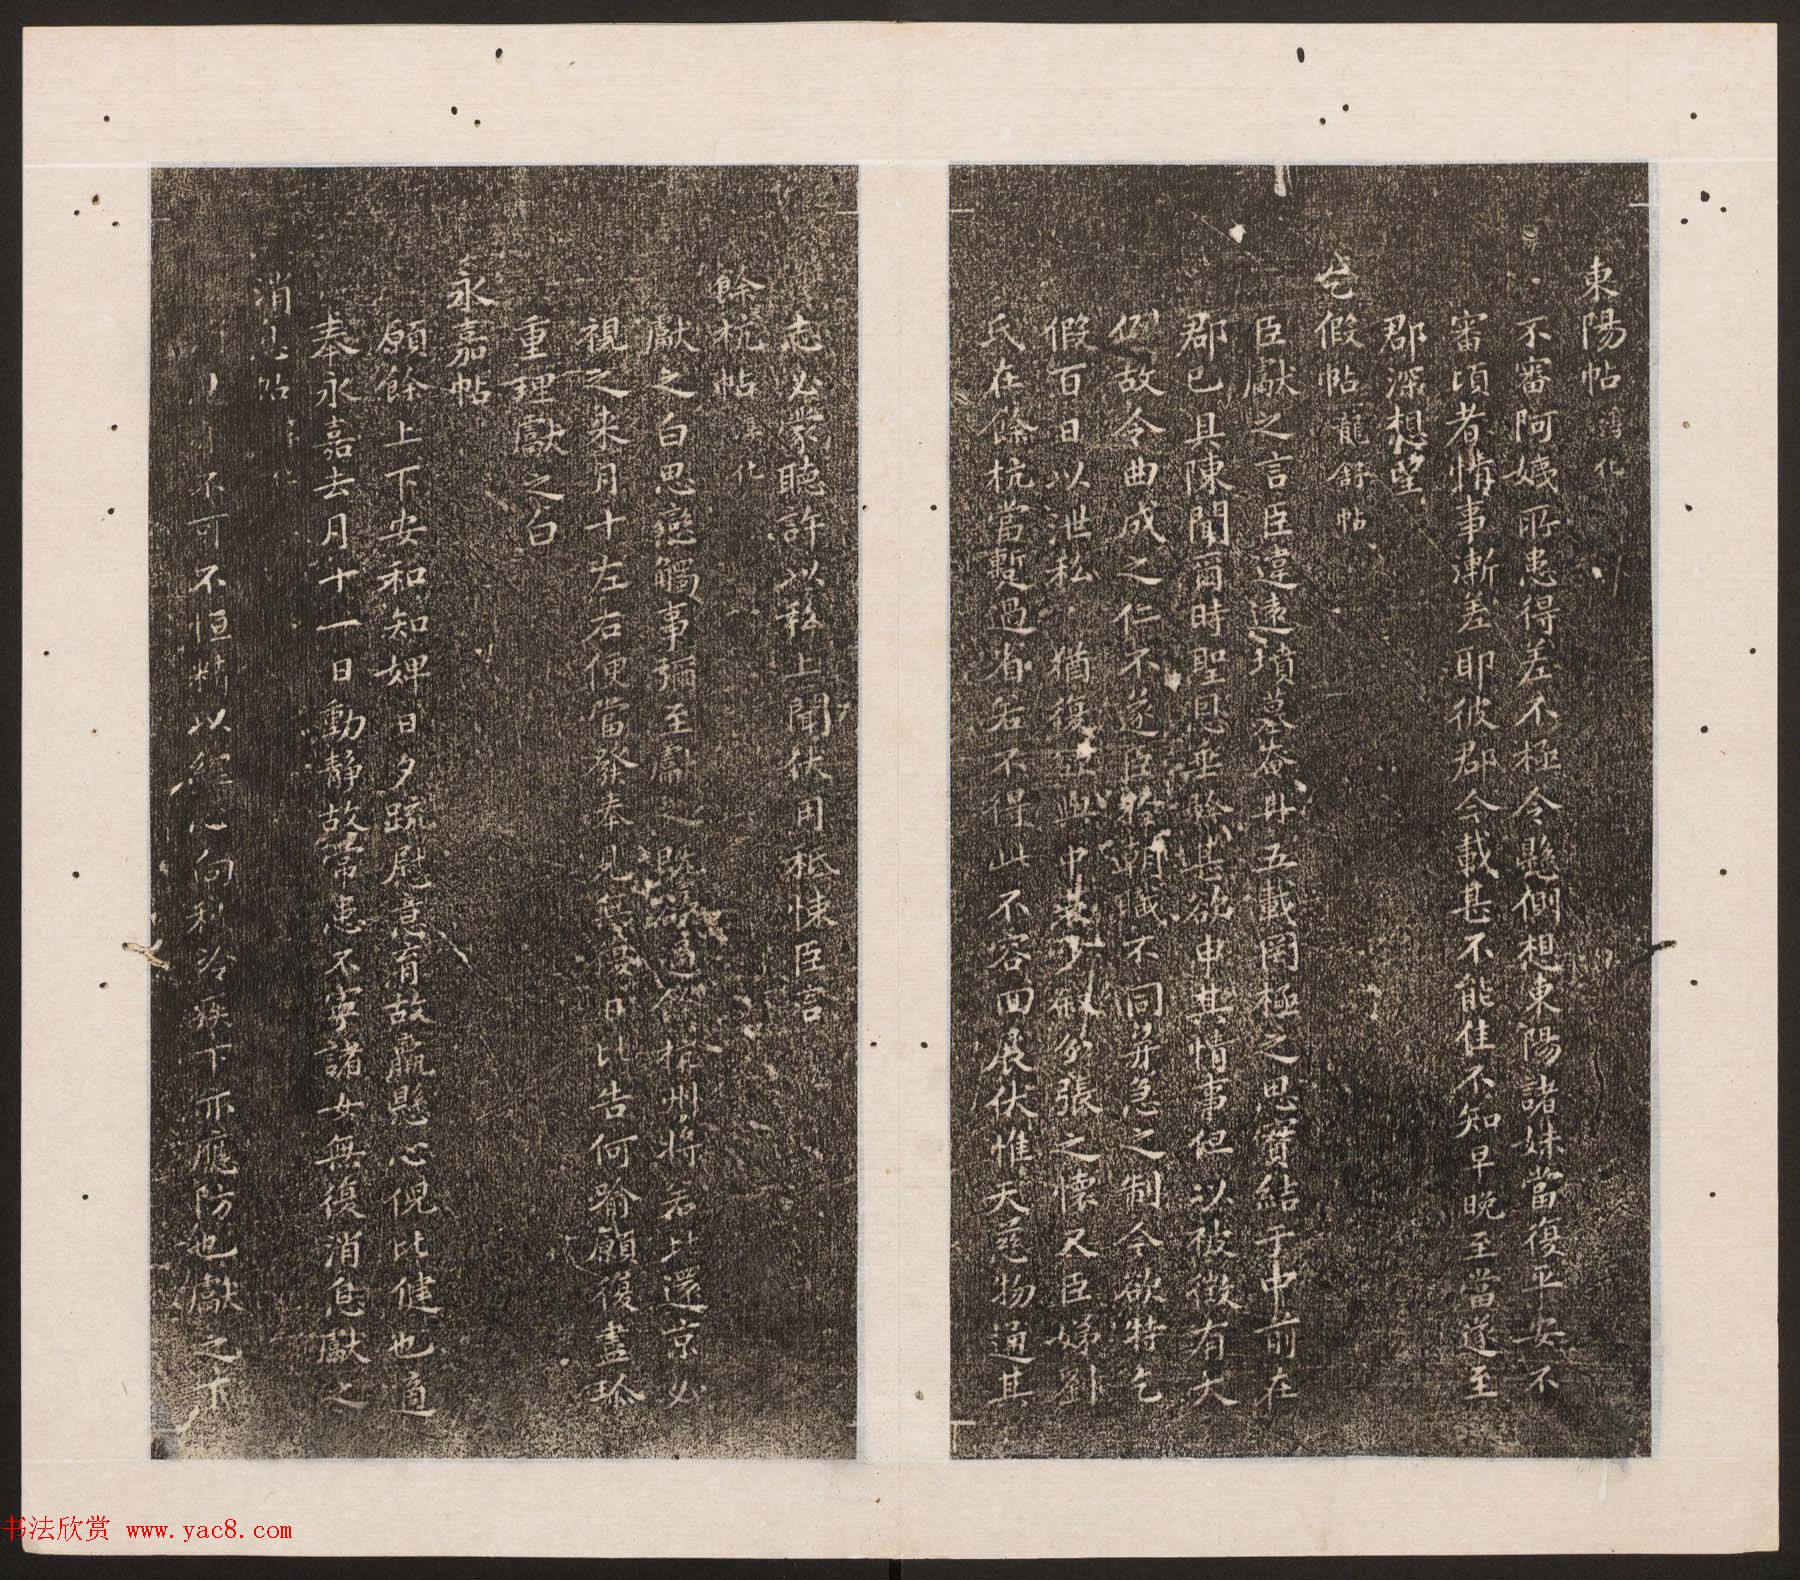 東陽帖 淳化
不審阿姨所患得差不極令懸惻想東陽諸妹當復平安不
審頃者情事漸差耶彼郡今載甚不能佳不知早晚至當遂至
郡深想望
乞假帖 龍舒帖
臣獻之言臣違遠墳墓奄廿五載罔極之思實結于中前在
郡已具陳聞爾時聖恩垂 其欲申其情事但以被徵有大
例故令曲成之仁不遂臣 朝職不同 急之制今欲特乞
假百日以泄私 猶復 此申 張之懷又臣娣劉
氏在餘杭當暫過省若不得此不容回展伏惟天慈物通其
志必蒙聽許以敢上聞伏用祗悚臣言
餘杭帖 淳化
獻之白思戀觸事彌至獻之既欲過餘杭州將若比還京必
視之來月十左右便當發奉見無復日比告何喻願復盡珎
重理獻之白
永嘉帖
願餘上下安和知婢日夕疏慰意育故羸懸心俔比健也適
奉永嘉去月十一日動靜故常患不寧諸女無復消息獻之
消息帖 淳化
不可不恒精以經心向秋冷疾下亦應防也獻之下
书法欣赏 www.yac8.com